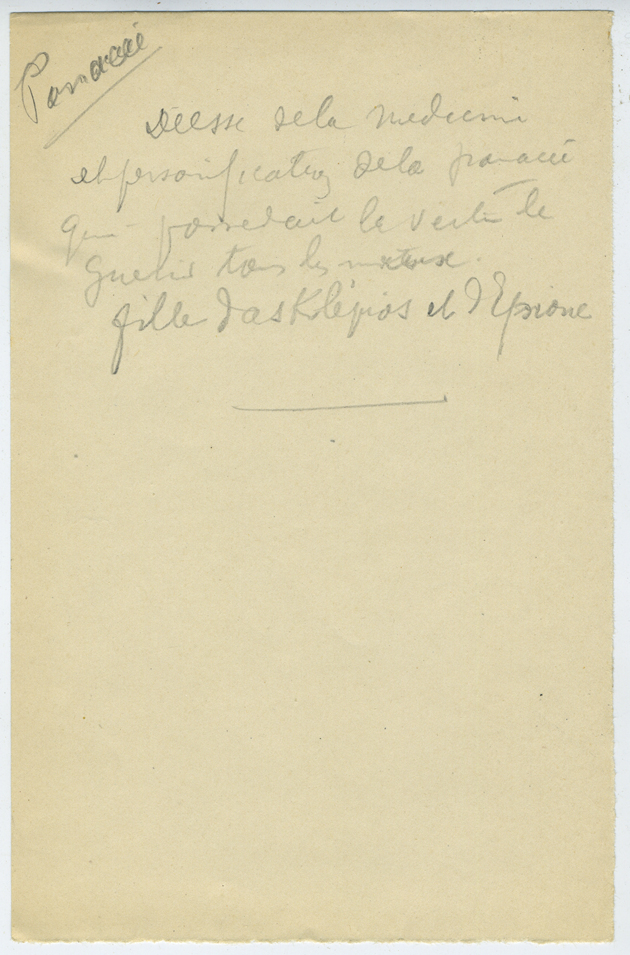 Panacée
Déesse de la medecine
et personnification de la panacée
qui possedait la vertu de
guerir tous les
fille d'asklépios et d'Epione